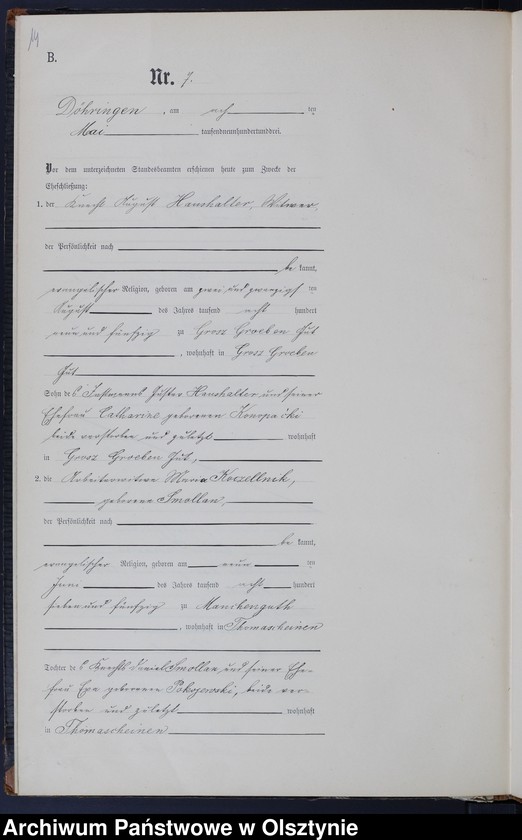 14
B.
Nr. 7.
Döhringen, am acht ten
Mai tausendneunhundertunddrei.
Vor dem unterzeichneten Standesbeamten erschienen heute zum Zwecke der
Eheschließung:
1. der Knecht August Haushalter, Witwer,
der Persönlichkeit nach
be kannt,
evangelischer Religion, geboren am zwei und zwanzigs ten
August des Jahres tausend acht hundert
neun und fünfzig zu Gross Groeben Gut
, wohnhaft in Gross Groeben
Gut
Sohn des Instmanns Haushalter und seiner
Ehefrau Catharine geborenen Konopacki
beide verstorben und zuletzt wohnhaft
in Gross Groeben Gut,
2. die Arbeiterwitwe Maria Koczellnik,
geborene Smollan,
der Persönlichkeit nach
be kannt,
evangelischer Religion, geboren am neun ten
Juni des Jahres tausend acht hundert
sieben und fünfzig zu Manchenguth
, wohnhaft in Thomascheinen
Tochter des Knechts Daniel Smollan und seiner Ehe-
frau Eva geborene Pokojewski, beide ver-
storben und zuletzt wohnhaft
in Thomascheinen
Archiwum Państwowe w Olsztynie